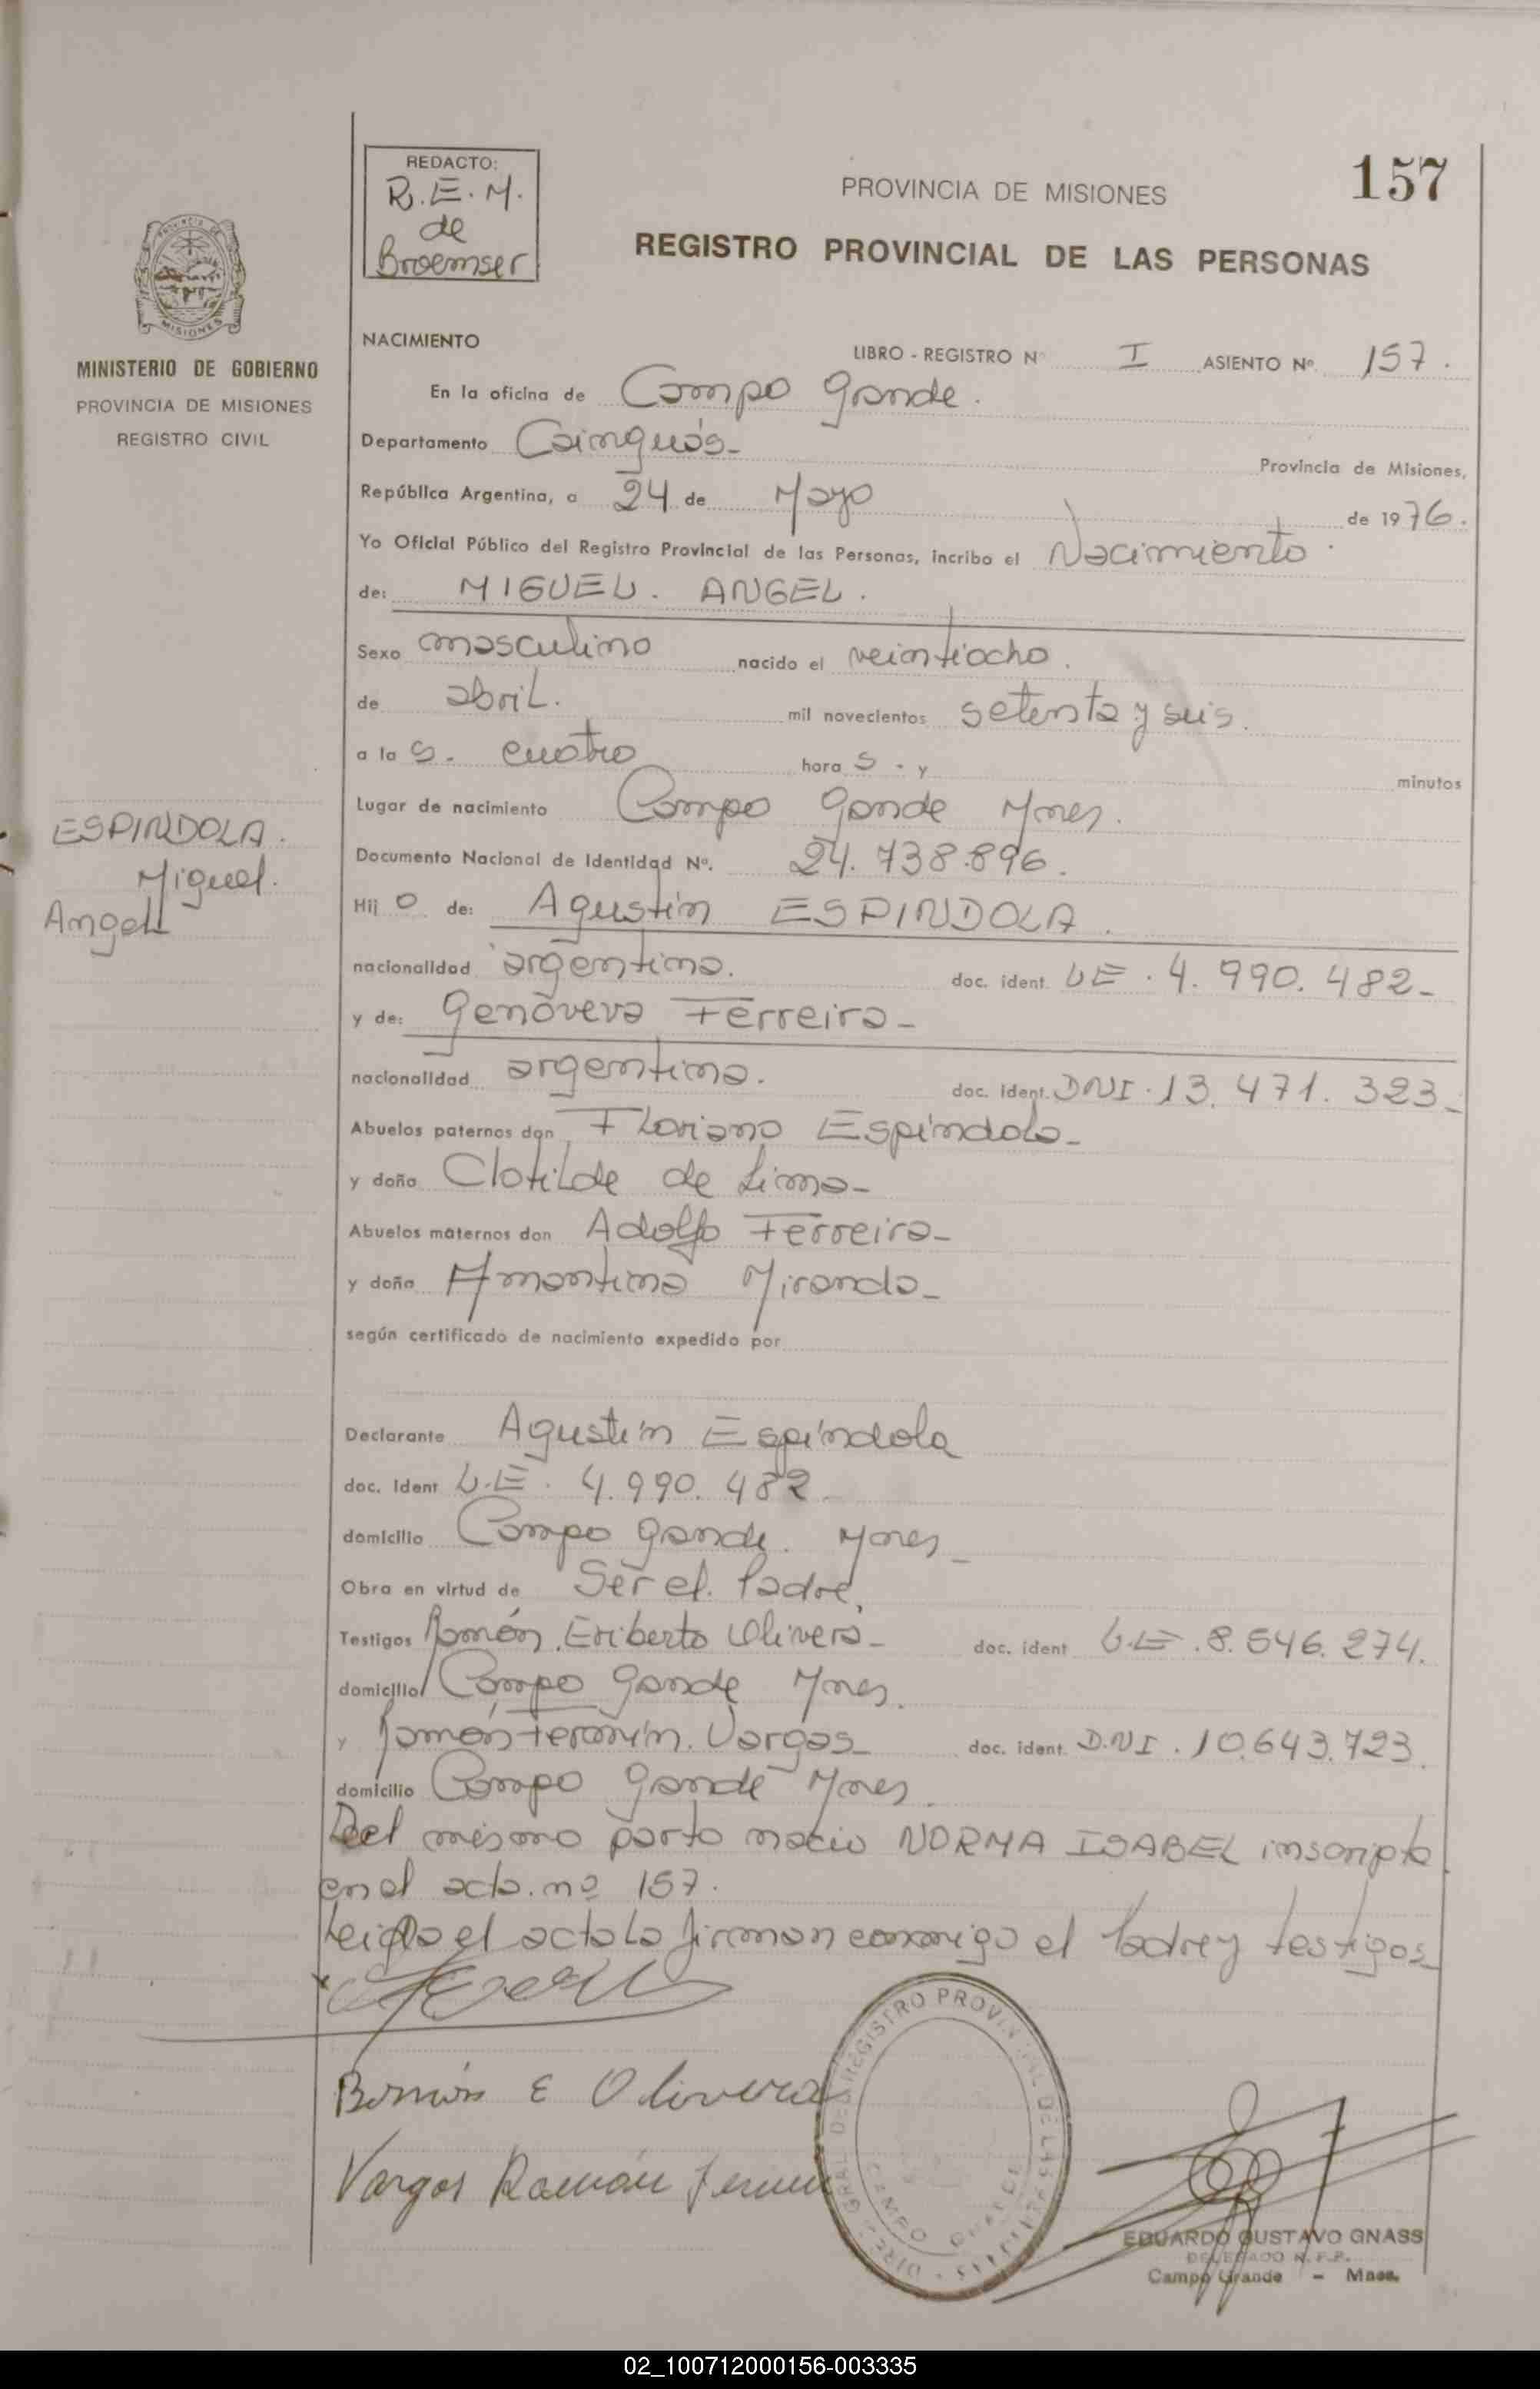 REDACTO:
R.E.M.
de
Broemser
PROVINCIA DE MISIONES
157
REGISTRO PROVINCIAL DE LAS PERSONAS
MISIONES
MINISTERIO DE GOBIERNO
PROVINCIA DE MISIONES
REGISTRO CIVIL
NACIMIENTO
LIBRO - REGISTRO Nº I ASIENTO Nº 157.
En la oficina de Campo Grande.
Departamento Cainguás-
Provincia de Misiones,
República Argentina, a 24 de Mayo de 1976.
Yo Oficial Público del Registro Provincial de las Personas, incribo el Nacimiento.
de: MIGUEL. ANGEL.
Sexo masculino nacido el veintiocho.
de abril. mil novecientos setenta y seis.
a la s. cuatro hora s - y minutos
Lugar de nacimiento Campo Gande Mnes.
ESPINDOLA.
Miguel.
Angel
Documento Nacional de Identidad Nº. 24.738.896.
Hij o de: Agustín ESPINDOLA.
nacionalidad argentina. doc. ident. LE. 4.990.482-
y de: Genoveva Ferreira-
nacionalidad argentina. doc. ident. DNI. 13.471.323-
Abuelos paternos don Floriano Espíndola-
y doña Clotilde de Lima-
Abuelos maternos don Adolfo Ferreira-
y doña Amantina Miranda-
según certificado de nacimiento expedido por
Declarante Agustín Espíndola
doc. Ident L.E. 4.990.482.
domicilio Campo Gande. Mnes-
Obra en virtud de Ser el. Padre,
Testigos Ramón. Eriberto Olivera- doc. ident L.E. 8.546.274.
domicilio Campo Gande Mnes.
y Ramón Fermín. Vargas- doc. ident. D.N.I. 10.643.723.
domicilio Campo Gande Mnes.
Del mismo parto nacio NORMA ISABEL inscripta
en el acta. nº 157.
Leida el acta la firman conmigo el Padre y testigos
Ramón E Olivera
Vargas Ramón Fermin
DIREC. GRAL. DEL REGISTRO PROVINCIAL DE LAS PERSONAS
CAMPO GRANDE
EDUARDO GUSTAVO GNASS
DELEGADO R.P.P.
Campo Grande - Mnes.
02_100712000156-003335